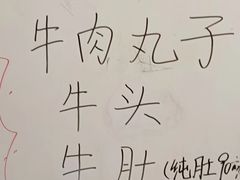 牛肉丸子
牛头
牛肚(纯肚90